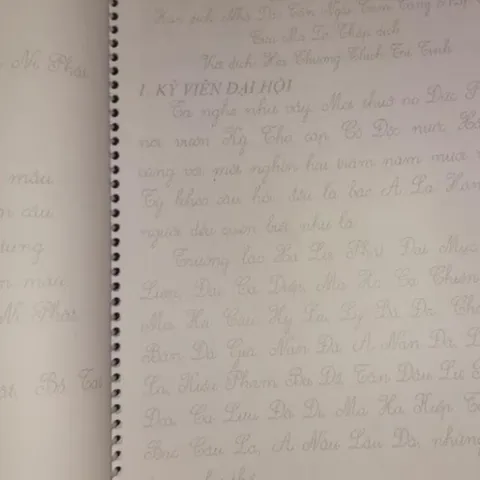 Ni Phật
mầu
câu
mầu
Ni Phật
Bồ Tát
Hán dịch: Nhà Dao Tần Ngài Tam Tạng Pháp
Cưu Ma La Thập dịch
Việt dịch: Hòa Thượng Thích Trí Tịnh
I. KỲ VIÊN ĐẠI HỘI
Ta nghe như vầy: Một thuở nọ Đức P
nơi vườn Kỳ Thọ Cấp Cô Độc nước Xá
cùng với một nghìn hai trăm năm mươi
Tỳ kheo câu hội, đều là bậc A La Hán
người đều quen biết như là:
Trưởng lão Xá Lợi Phất, Đại Mục
Liên, Đại Ca Diếp, Ma Ha Ca Chiên
Ma Ha Câu Hy La, Ly Bà Đa, Châ
Bàn Đà Già, Nan Đà, A Nan Đà, L
La, Kiều Phạm Ba Đề, Tân Đầu Lô
Đọa, Ca Lưu Đà Di, Ma Ha Kiếp T
Bạc Câu La, A Nậu Lâu Đà, những